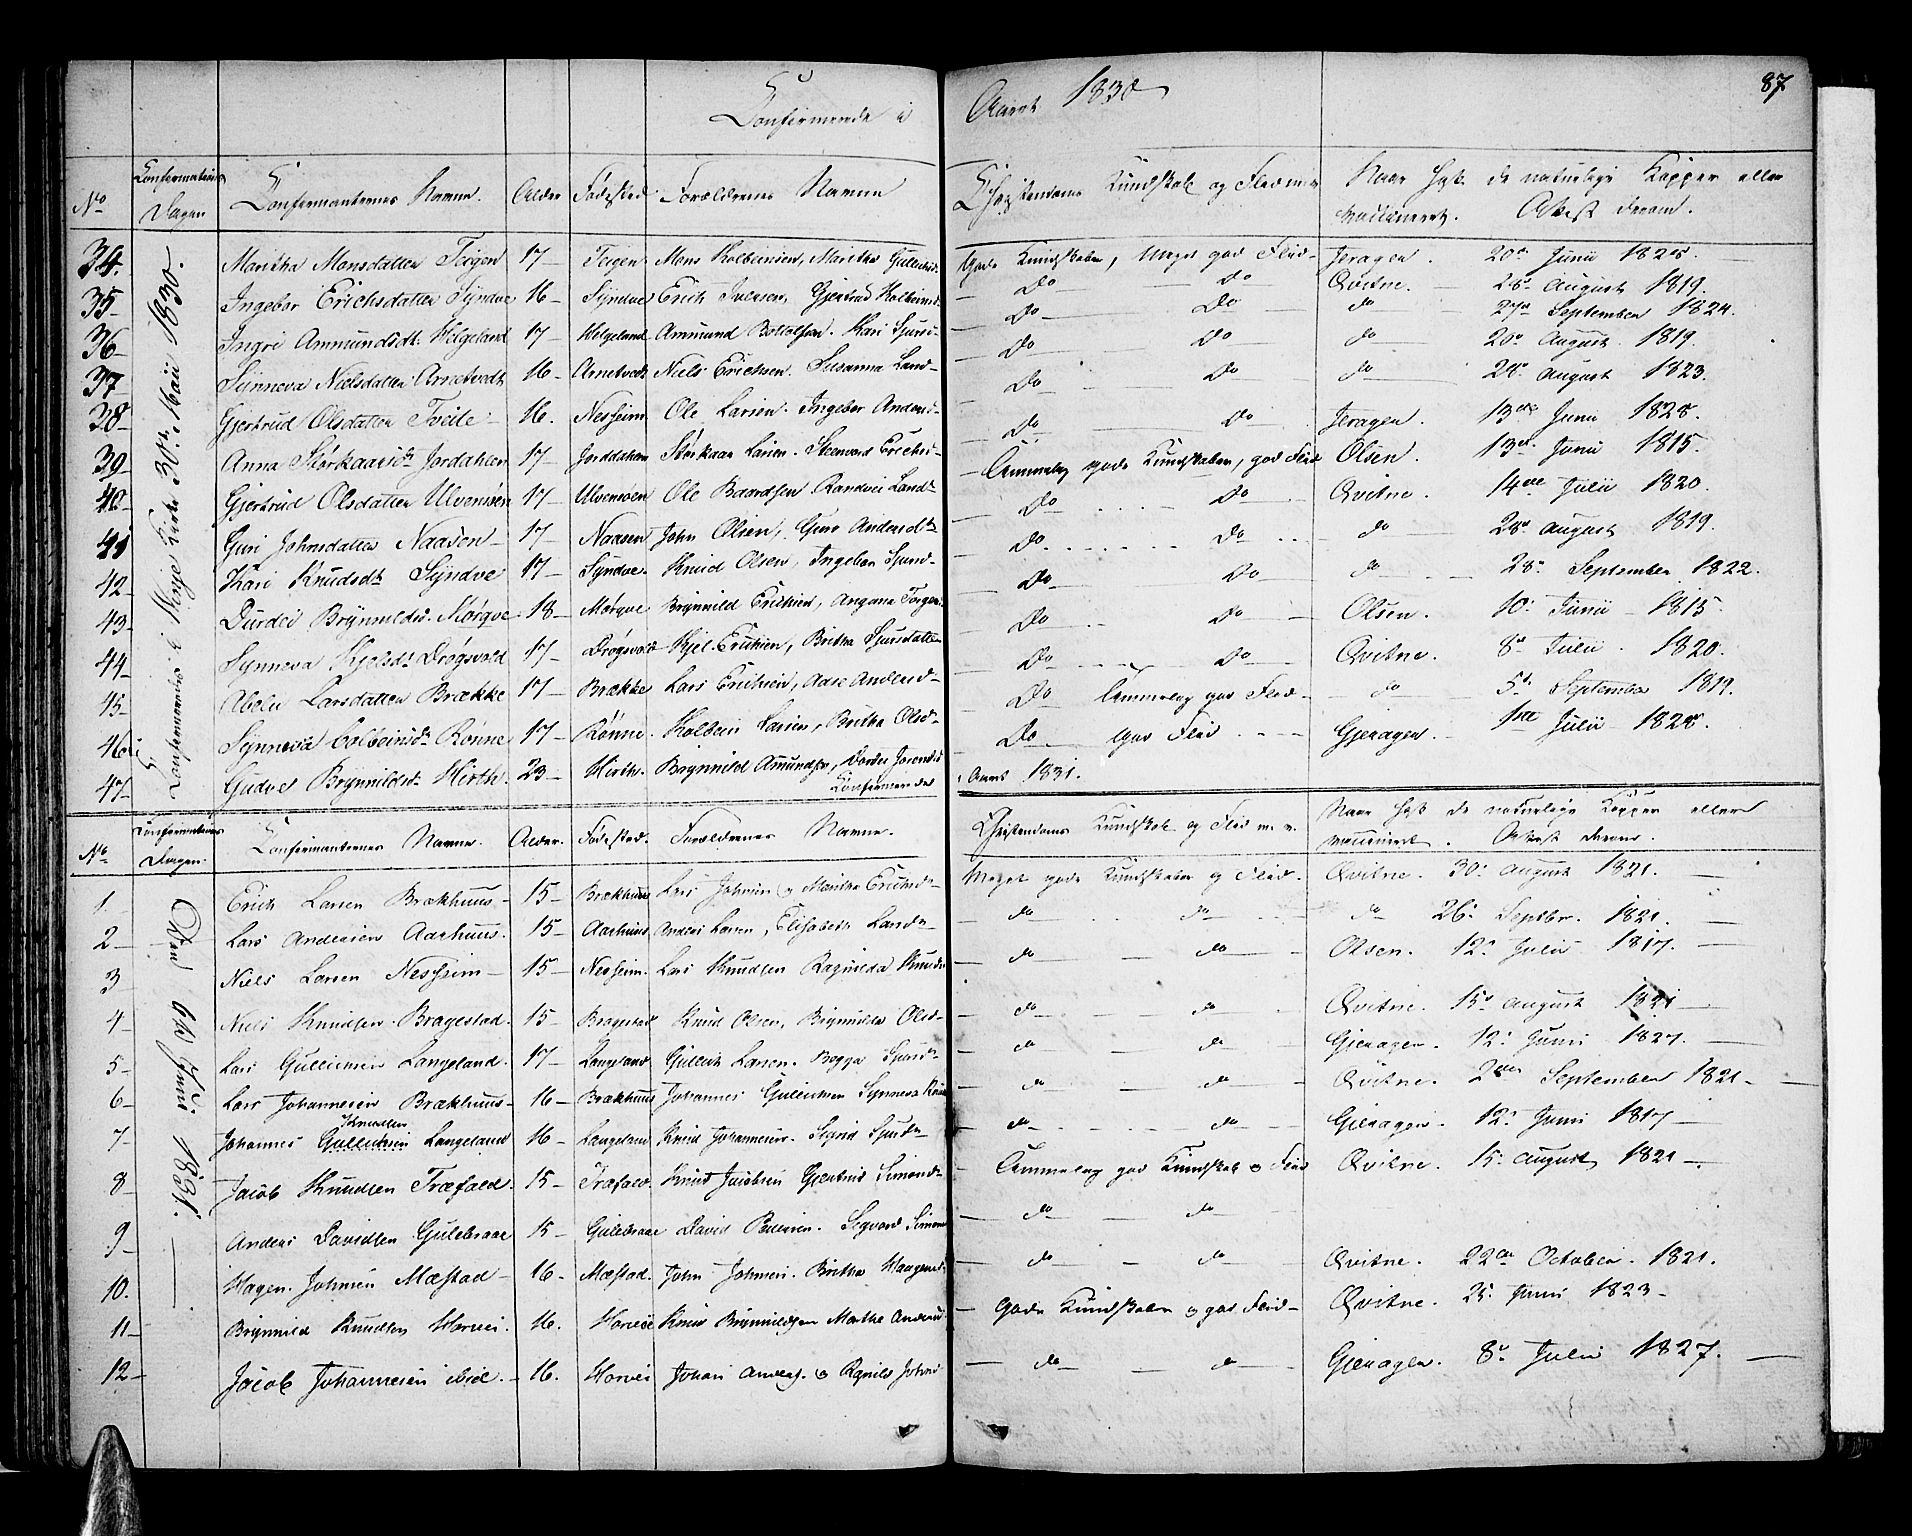 87
Confirmerede i Aaret 1830
No Confirmations Dagen Confirmanternes Navne. Alder Fødested Forældrenes Navne Christendoms Kundskab og Flid m. v. Naar hast de naturlige Kopper eller vaccineret. Attest derom.
Confirmerede i Kirke 30te Maii 1830.
34. Maritha Monsdatter Teigen 17 Teigen Mons Kolbeinsen, Maritha Gullichsd. Gode Kundskaber, Meget god Flid Jeragen. 20de Junii 1825
35 Ingebor Erichsdatter Syndve 16 Syndve Erich Iversen, Gjertrud Kolbeinsd. Do Do Qvitne. 28de August 1819.
36 Ingri Ammundsdt. Helgeland 17 Helgeland Ammund Bottolfsen. Kari Sjursd. Do Do do 27de September 1824.
37 Synneva Nielsdatter Arnetvedt 16 Arnetvedt Niels Erichsen. Susanna Larsd. Do Do do 20de August 1819.
38 Gjertrud Olsdatter Tveite 16. Nesheim Ole Larsen. Ingebor Andersd. Do Do do 28de August 1823.
39 Anna Størkaarsdt Jordahlen 17 Jorddahlen Størkaar Larsen. Steenvor Erichsd. Do Do Jeragen. 13de Junii 1825.
40 Gjertrud Olsdatter Ulvensøen 17 Ulvensøen Ole Baardsen Randvei Larsdt Temmelig gode Kundskaber, god Flid Olsen. 13de Junii 1815.
41 Guri Johnsdatter Naasen 17 Naasen John Olsen, Guro Andersdt Do Do Qvitne. 14de Julii 1820.
42 Kari Knudsdt Syndve 17 Syndve. Knud Olsen, Ingebor Sjursd. Do Do do 28de August 1819.
43 Durdei Brynnildsd. Mørqve 18 Mørqve Brynnild Erichsen, Angana Torgersd. Do Do do 28de September 1822.
44 Synneva Kjelsdt Drøgsvold 17 Drøgsvold Kjel Erichsen, Britha Sjursdatter Do Do Olsen. 10de Junii 1815.
45 Abelu Larsdatter Brække 17 Brække Lars Erichsen, Aase Andersd. Do Do Qvitne. 8de Julii 1820.
46 Synneva Colbeinsdt Rønne 17 Rønne. Kolbein Larsen, Britha Olsd. Do Temmelig god Flid do 5te September 1819.
47 Gudve Brynnildsdt Hirth. 23 Hirth. Brynnild Amundsen, Dordei Do god Flid Gjeragen. 1ste Julii 1825.
Confirmerede i Aaret 1831.
No Confirmations Dagen. Confirmanternes Navne. Alder. Fødested. Forældrenes Navne. Christendoms Kundskab og Flid m. v. Naar hast de naturlige Kopper eller vaccineret. Attest derom.
Den 12 Junii 1831.
1. Erich Larsen Brækhuus 15 Brækhuus Lars Johnsen og Maritha Erichsd. Meget gode Kundskaber og Flid. Qvitne. 30. August 1821.
2 Lars Andersen Aarhuus. 15 Aarhuus Anders Larsen, Elisabeth Larsd. do do do 26. Septbr. 1821.
3 Niels Larsen Nesheim 15 Nesheim. Lars Knudsen Ragnilda Knudsd. do do Olsen. 12. Julii 1817.
4 Niels Knudsen Bragestad. 15 Bragestad Knud Olsen, Brynnilda Olsd. do do Qvitne. 15. August 1821
5 Lars Gullichsen Langeland. 17 Langeland Gullich Larsen. Bogga Sjursd. do do Gjeragen. 12. Junii 1827.
6 Lars Johannesen Brækhuus 16 Brækhuus Johannes Gullichsen Synneva do do Qvitne. 2den September 1821.
7 Johannes Gullichsen Knudsen Langeland 16 Langeland Knud Johannesen. Sigrid Sjursd. do do Gjeragen. 12. Junii 1817
8 Jacob Knudsen Træfald. 15 Træfald. Knud Jacobsen Gjertrud Simonsd. Temmelig god Kundskab og Flid Qvitne. 15. August 1821
9 Anders Davidsen Gulebraar 15 Gulebraar David Sigvord Simonsd. do do
10. Hagen Johnsen Mæstad 16 Mæstad. John Johnsen. Britha Haagensd. do do Qvitne. 22de October. 1821.
11 Brynnild Knudsen Horvei. 16. Horvei Knud Brynnildsen Marthe Andersd. Gode Kundskaber og god Flid Qvitne. 25. Junii 1823
12 Jacob Johannesen ibid. 16. Horvei Johan Anders. og Ragnild Johnsd. do do Gjeragen. 8de Julii 1827.